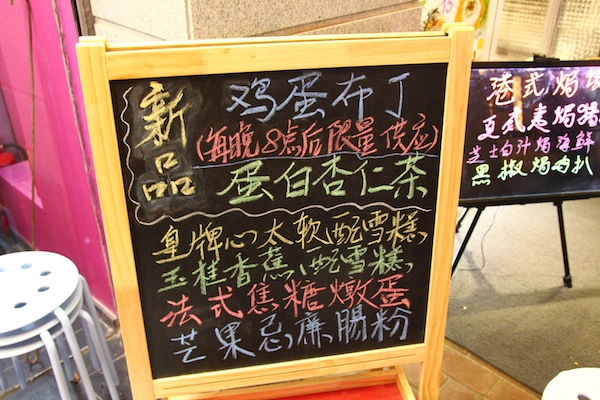 新品
鸡蛋布丁
(每晚8点后限量供应)
蛋白杏仁茶
皇牌心太软配雪糕
玉桂香蕉配雪糕
法式焦糖燉蛋
芒果忌廉腸粉
港式焗
芝士白汁焗海鲜
黑椒焗肉扒